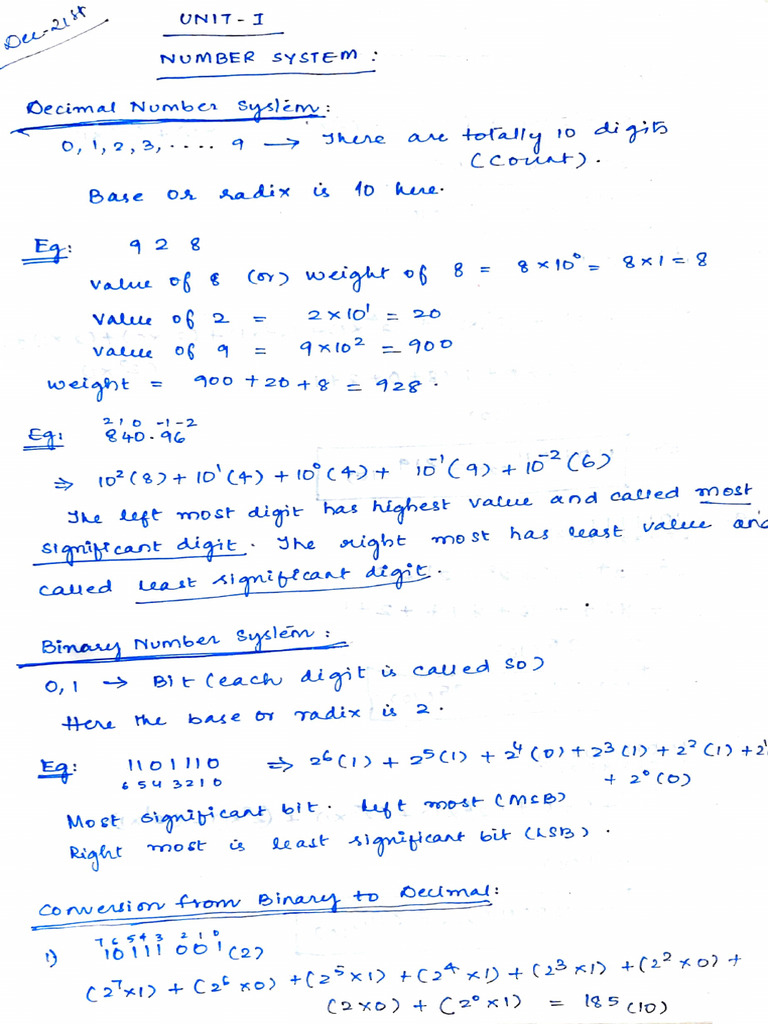 Dec-21st
UNIT-I
NUMBER SYSTEM:
Decimal Number System:
0, 1, 2, 3, ..... 9 → There are totally 10 digits
(Count).
Base or radix is 10 here.
Eg: 9 2 8
Value of 8 (or) weight of 8 = 8×10⁰ = 8×1 = 8
Value of 2 = 2×10¹ = 20
Value of 9 = 9×10² = 900
Weight = 900+20+8 = 928.
2 1 0 -1 -2
Eg: 840.96
⇒ 10²(8) + 10¹(4) + 10⁰(4) + 10⁻¹(9) + 10⁻²(6)
The left most digit has highest value and called most
significant digit. The right most has least value and
called least significant digit.
Binary Number System:
0, 1 → Bit (each digit is called so)
Here the base or radix is 2.
Eg: 1101110 ⇒ 2⁶(1) + 2⁵(1) + 2⁴(0) + 2³(1) + 2²(1) + 2¹
6 5 4 3 2 1 0 + 2⁰(0)
Most significant bit. Left most (MSB)
Right most is least significant bit (LSB).
Conversion from Binary to Decimal:
7 6 5 4 3 2 1 0
1) 10111001(2)
(2⁷×1) + (2⁶×0) + (2⁵×1) + (2⁴×1) + (2³×1) + (2²×0) +
(2×0) + (2⁰×1) = 185(10)